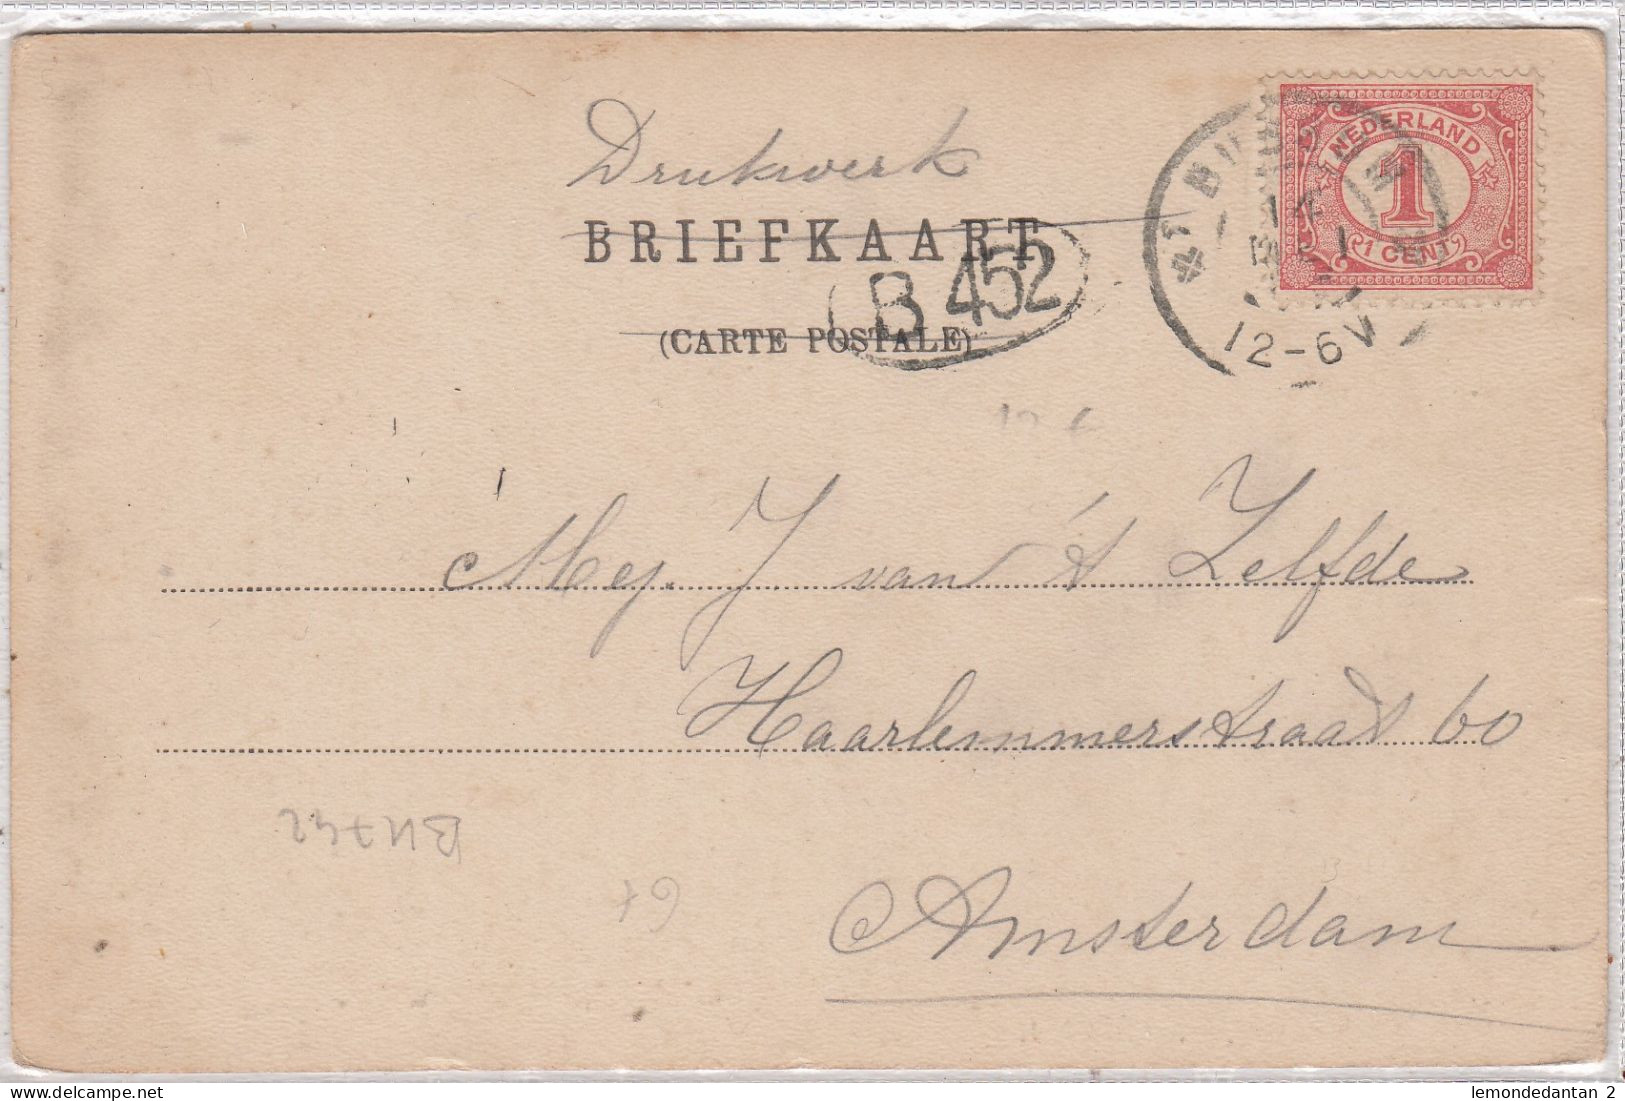 Drukwerk
BRIEFKAART
(CARTE POSTALE)
B 452
NEDERLAND
1
1 CENT
12-6V
Mej. J van 't Zelfde
Haarlemmerstraat 60
Amsterdam
lemondedantan 2